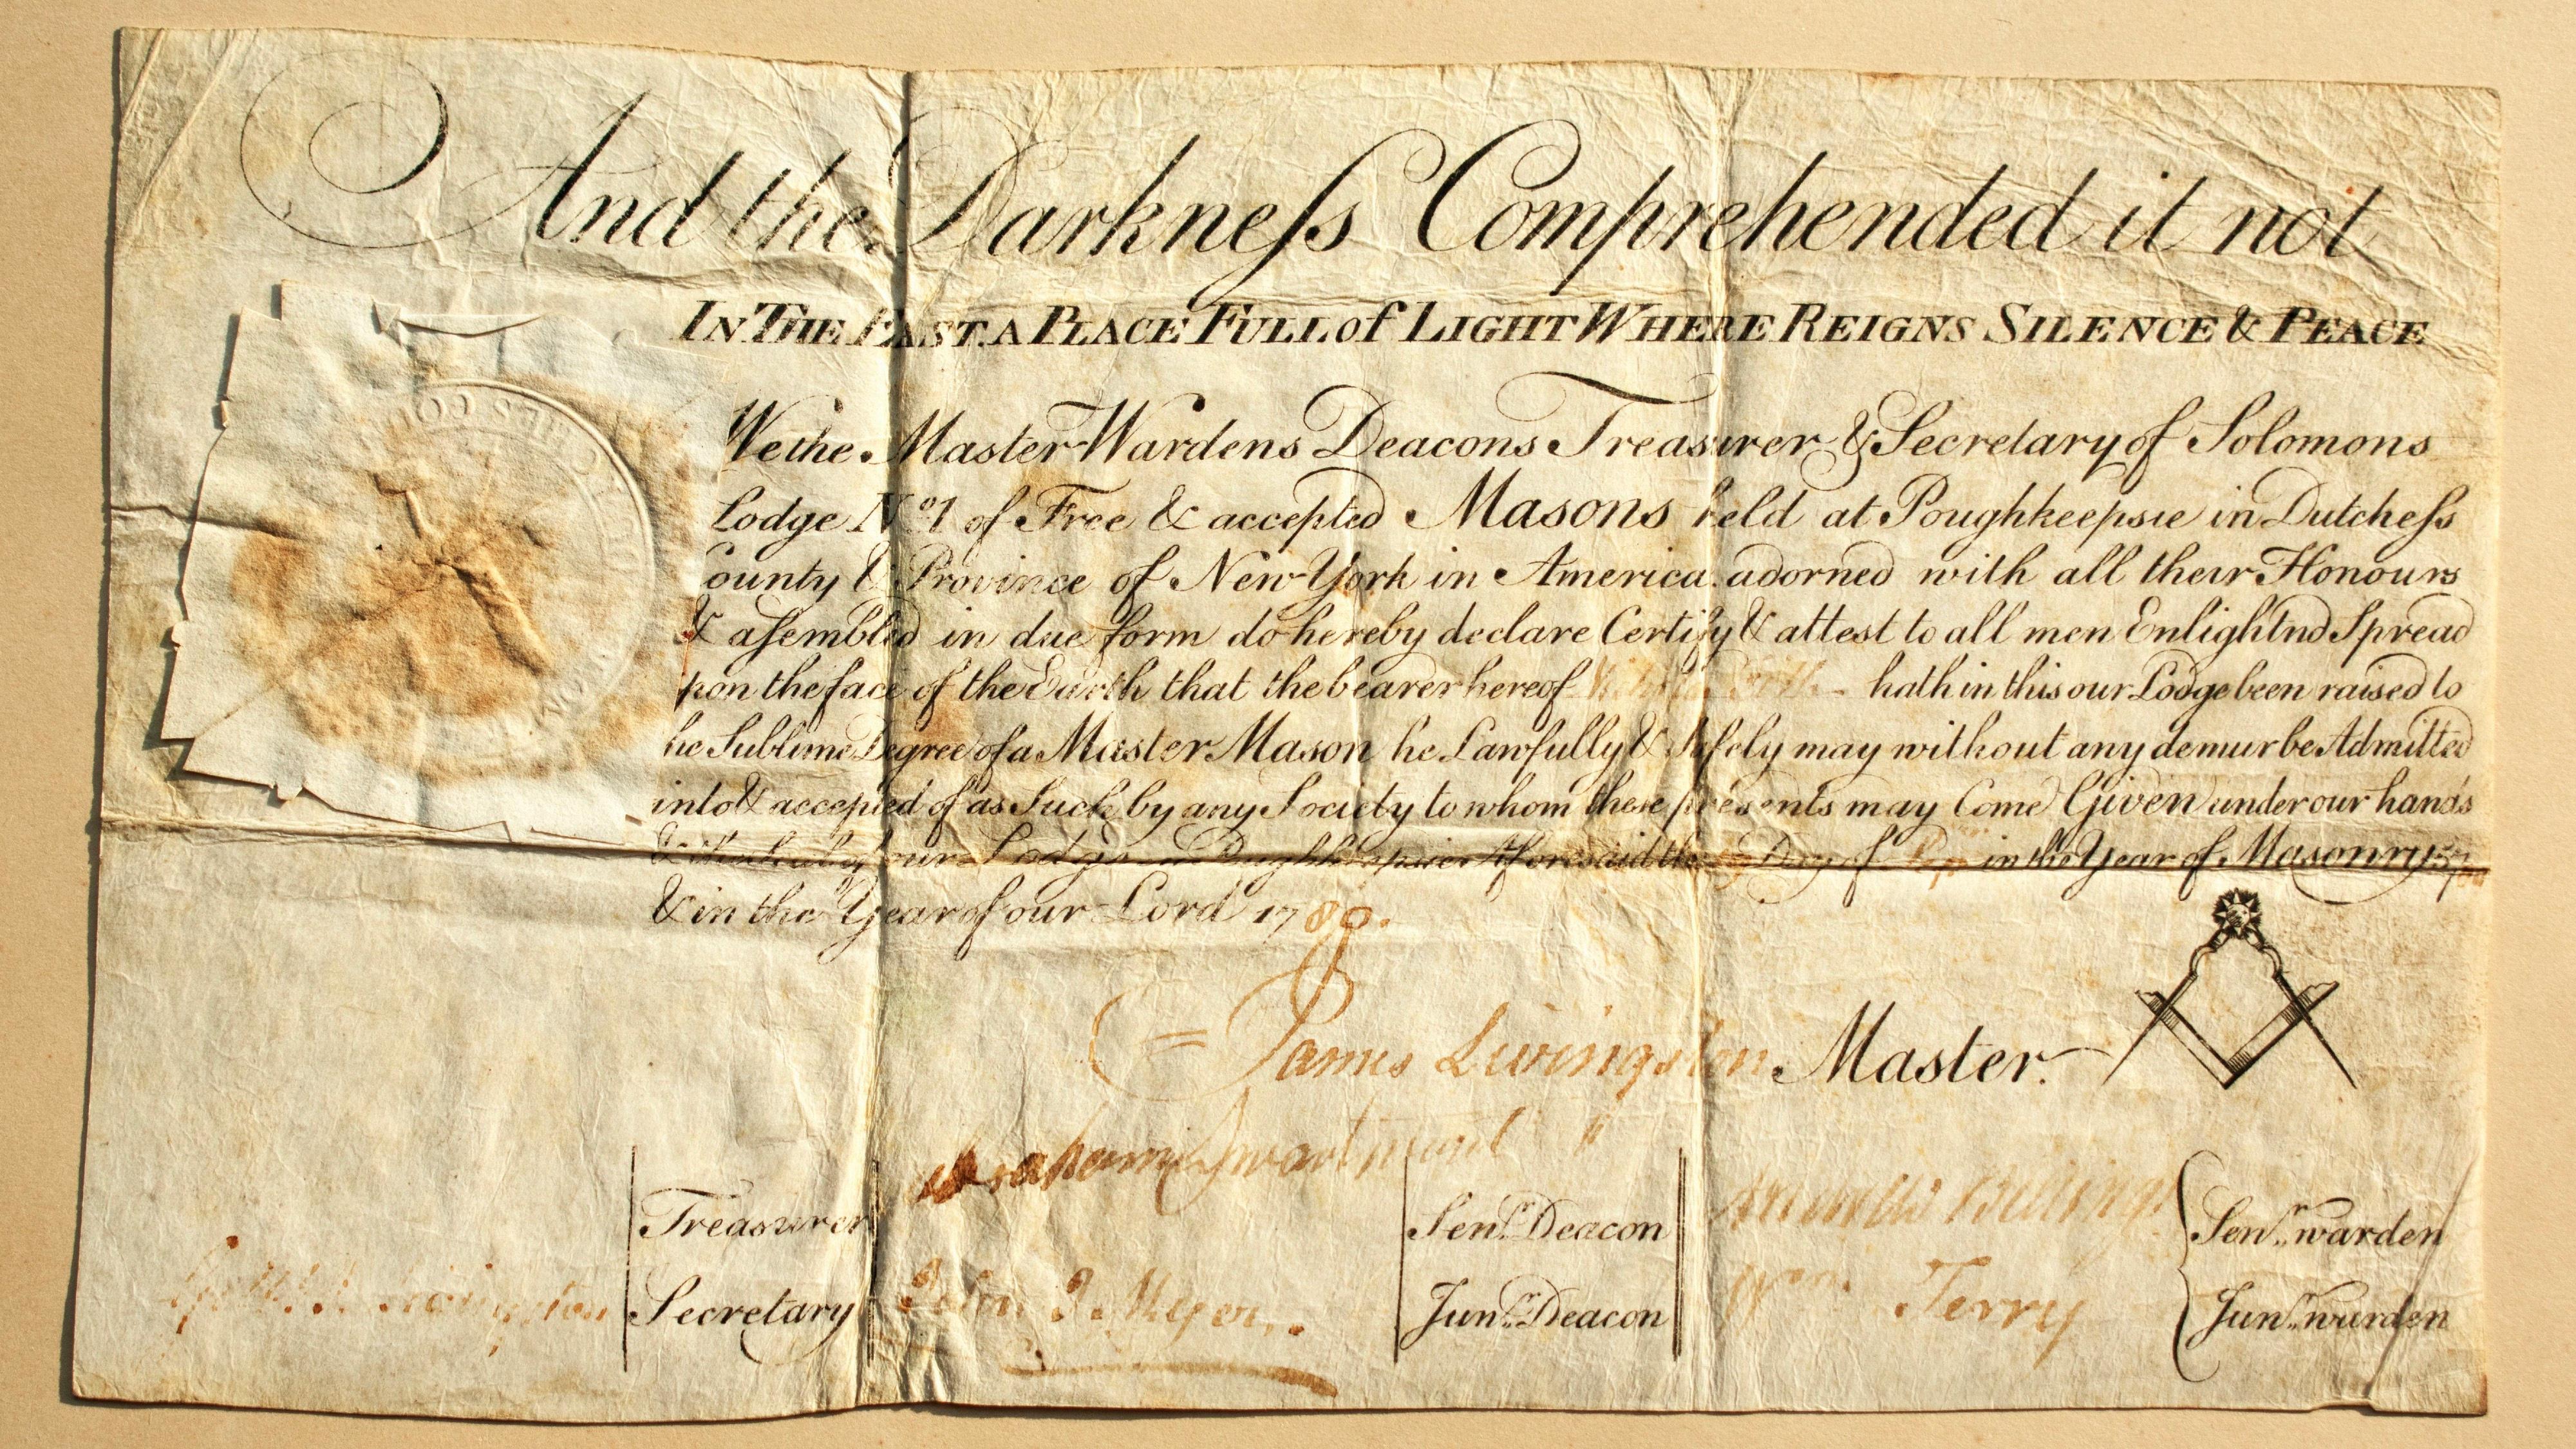 And the Darkneſs Comprehended it not
IN THE EAST. A PLACE FULL of LIGHT WHERE REIGNS SILENCE & PEACE
We the Master Wardens Deacons Treasurer & Secretary of Solomons
Lodge No. 1 of Free & accepted Masons held at Poughkeepsie in Dutcheſs
County & Province of New-York in America. adorned with all their Honours
& aſembled in due form do hereby declare Certify & attest to all men Enlightnd Spread
pon the face of the Earth that the bearer hereof hath in this our Lodge been raised to
he Sublime Degree of a Master Mason he Lawfully & Safely may without any demur be Admitted
into & accepted of as Such by any Society to whom these presents may Come Given under our hands
our Lodge Poughkeepsie Aforesaid the Day of in the Year of Masonry
& in the Year of our Lord 1780.
James Livingston Master.
Abraham Swartwout
Treasurer Sen.r Deacon Andrew Billings Sen.r warden
Livingston Secretary John J. Myer Jun.r Deacon Wm. Terry Jun.r warden